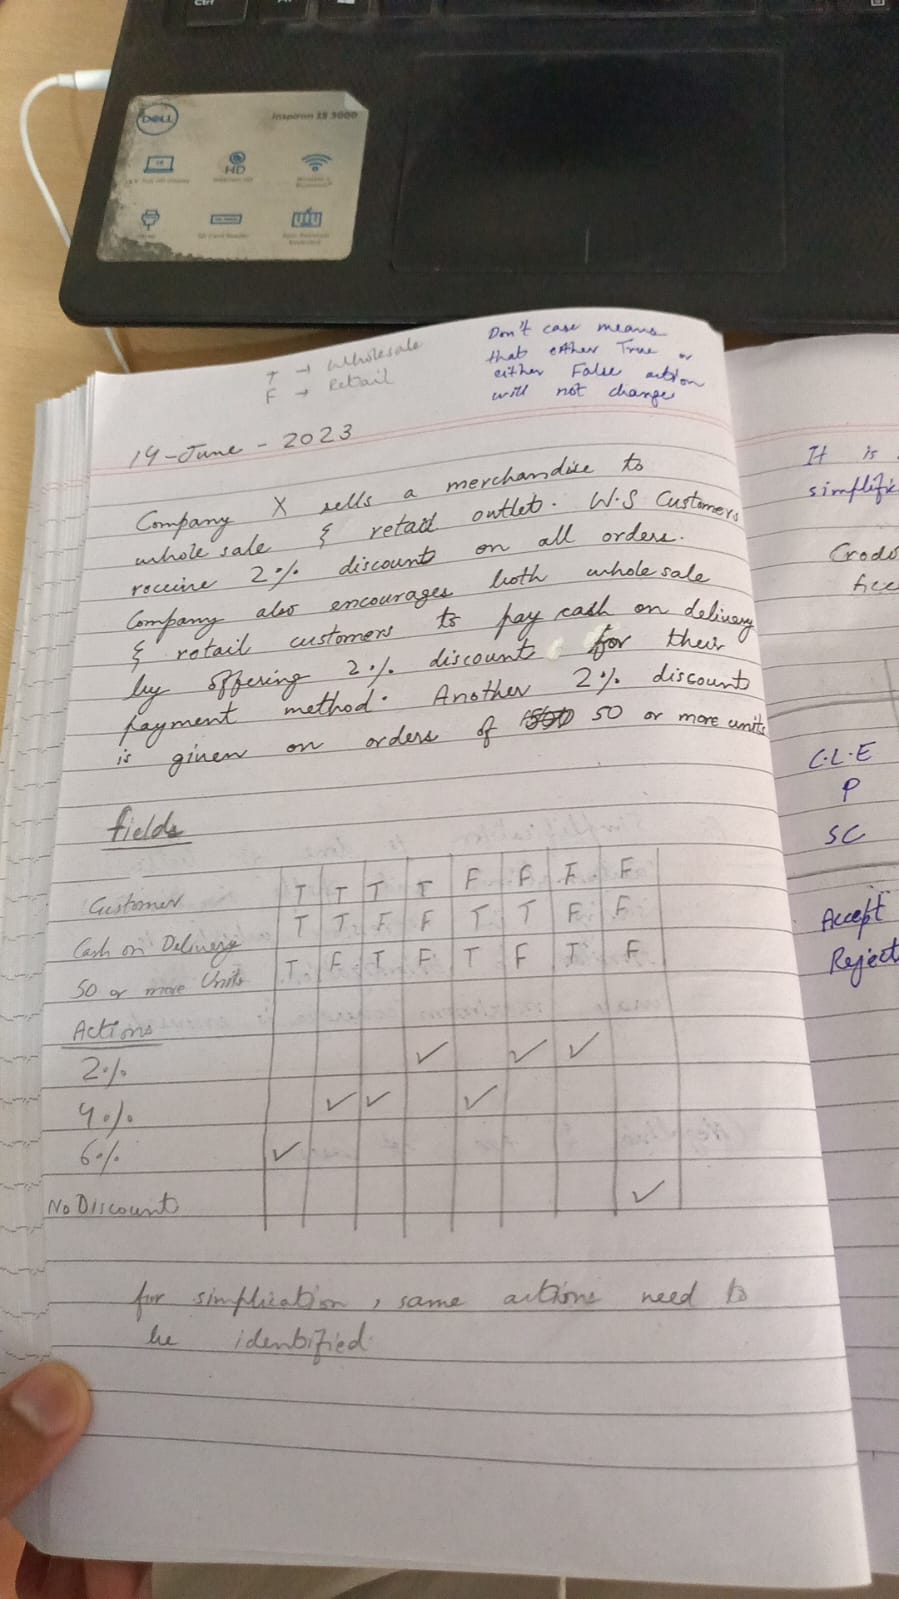 Ctrl
DELL
Inspiron 15 3000
HD
T → Wholesale
F → Retail
Don't case means
that either True or
either False action
will not change
14-June-2023
Company X sells a merchandise to
whole sale & retail outlet. W.S Customers
receive 2% discount on all orders.
Company also encourages both whole sale
& retail customers to pay cash on delivery
by offering 2% discount for their
payment method. Another 2% discount
is given on orders of 50 or more units
Fields
Customer T T T T F F F F
Cash on Delivery T T F F T T F F
50 or more Units T F T F T F T F
Actions
2% ✓ ✓ ✓
4% ✓ ✓ ✓
6% ✓
No Discount ✓
for simplication, same actions need to
be identified
It is
simplific
C.L.E
P
SC
Accept
Reject